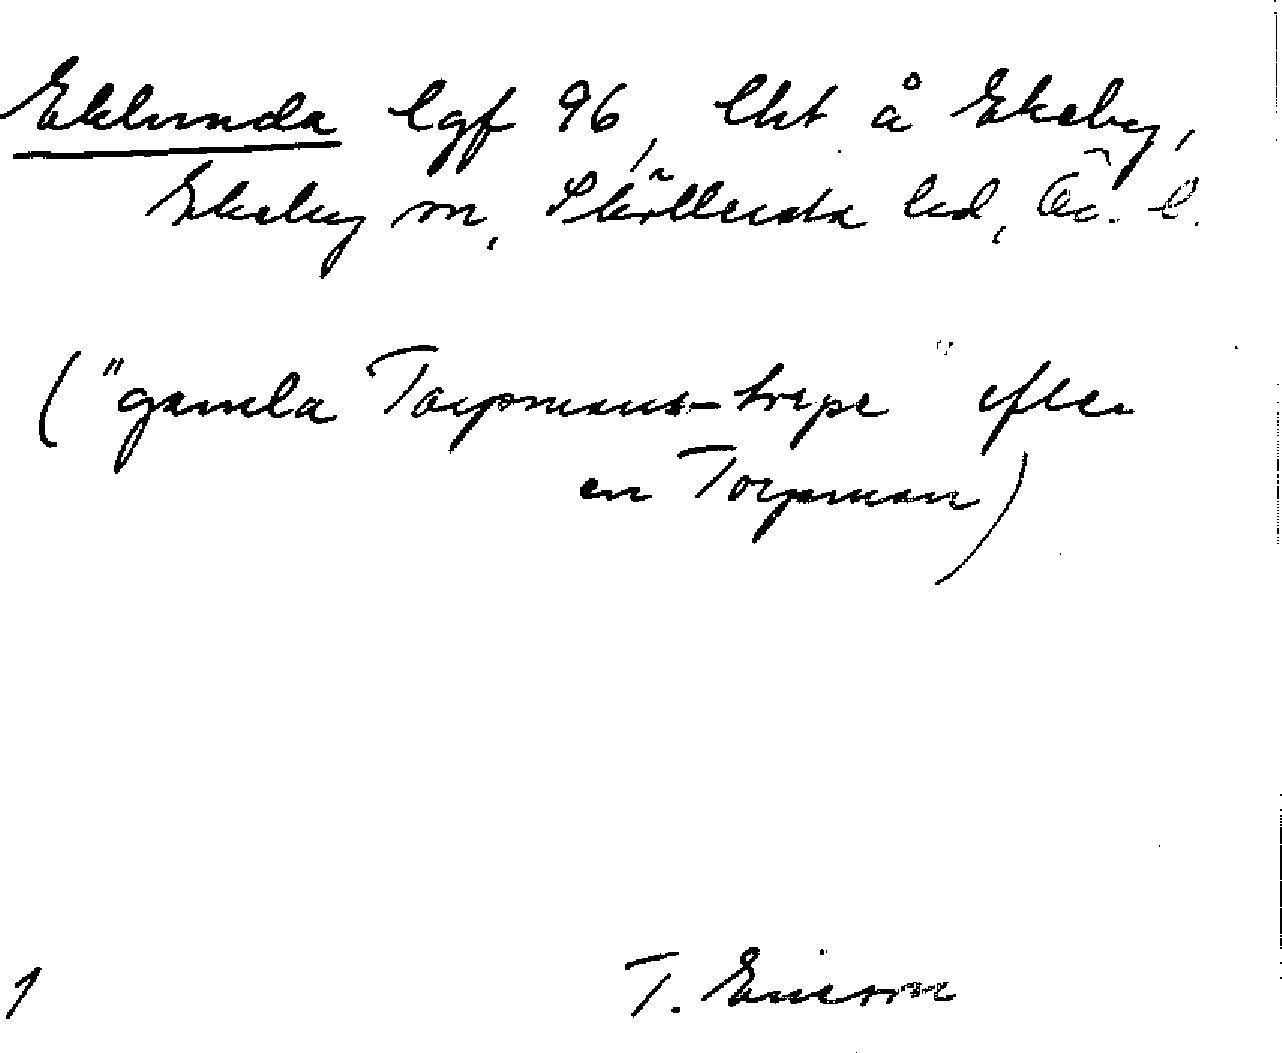 Eklunda lgf 96, lht å Ekeby,
Ekeby sn, Sköllersta hd, Ö. l.
("gamla Torpmans-torpe" efter
en Torpman)
1 T. Ericson